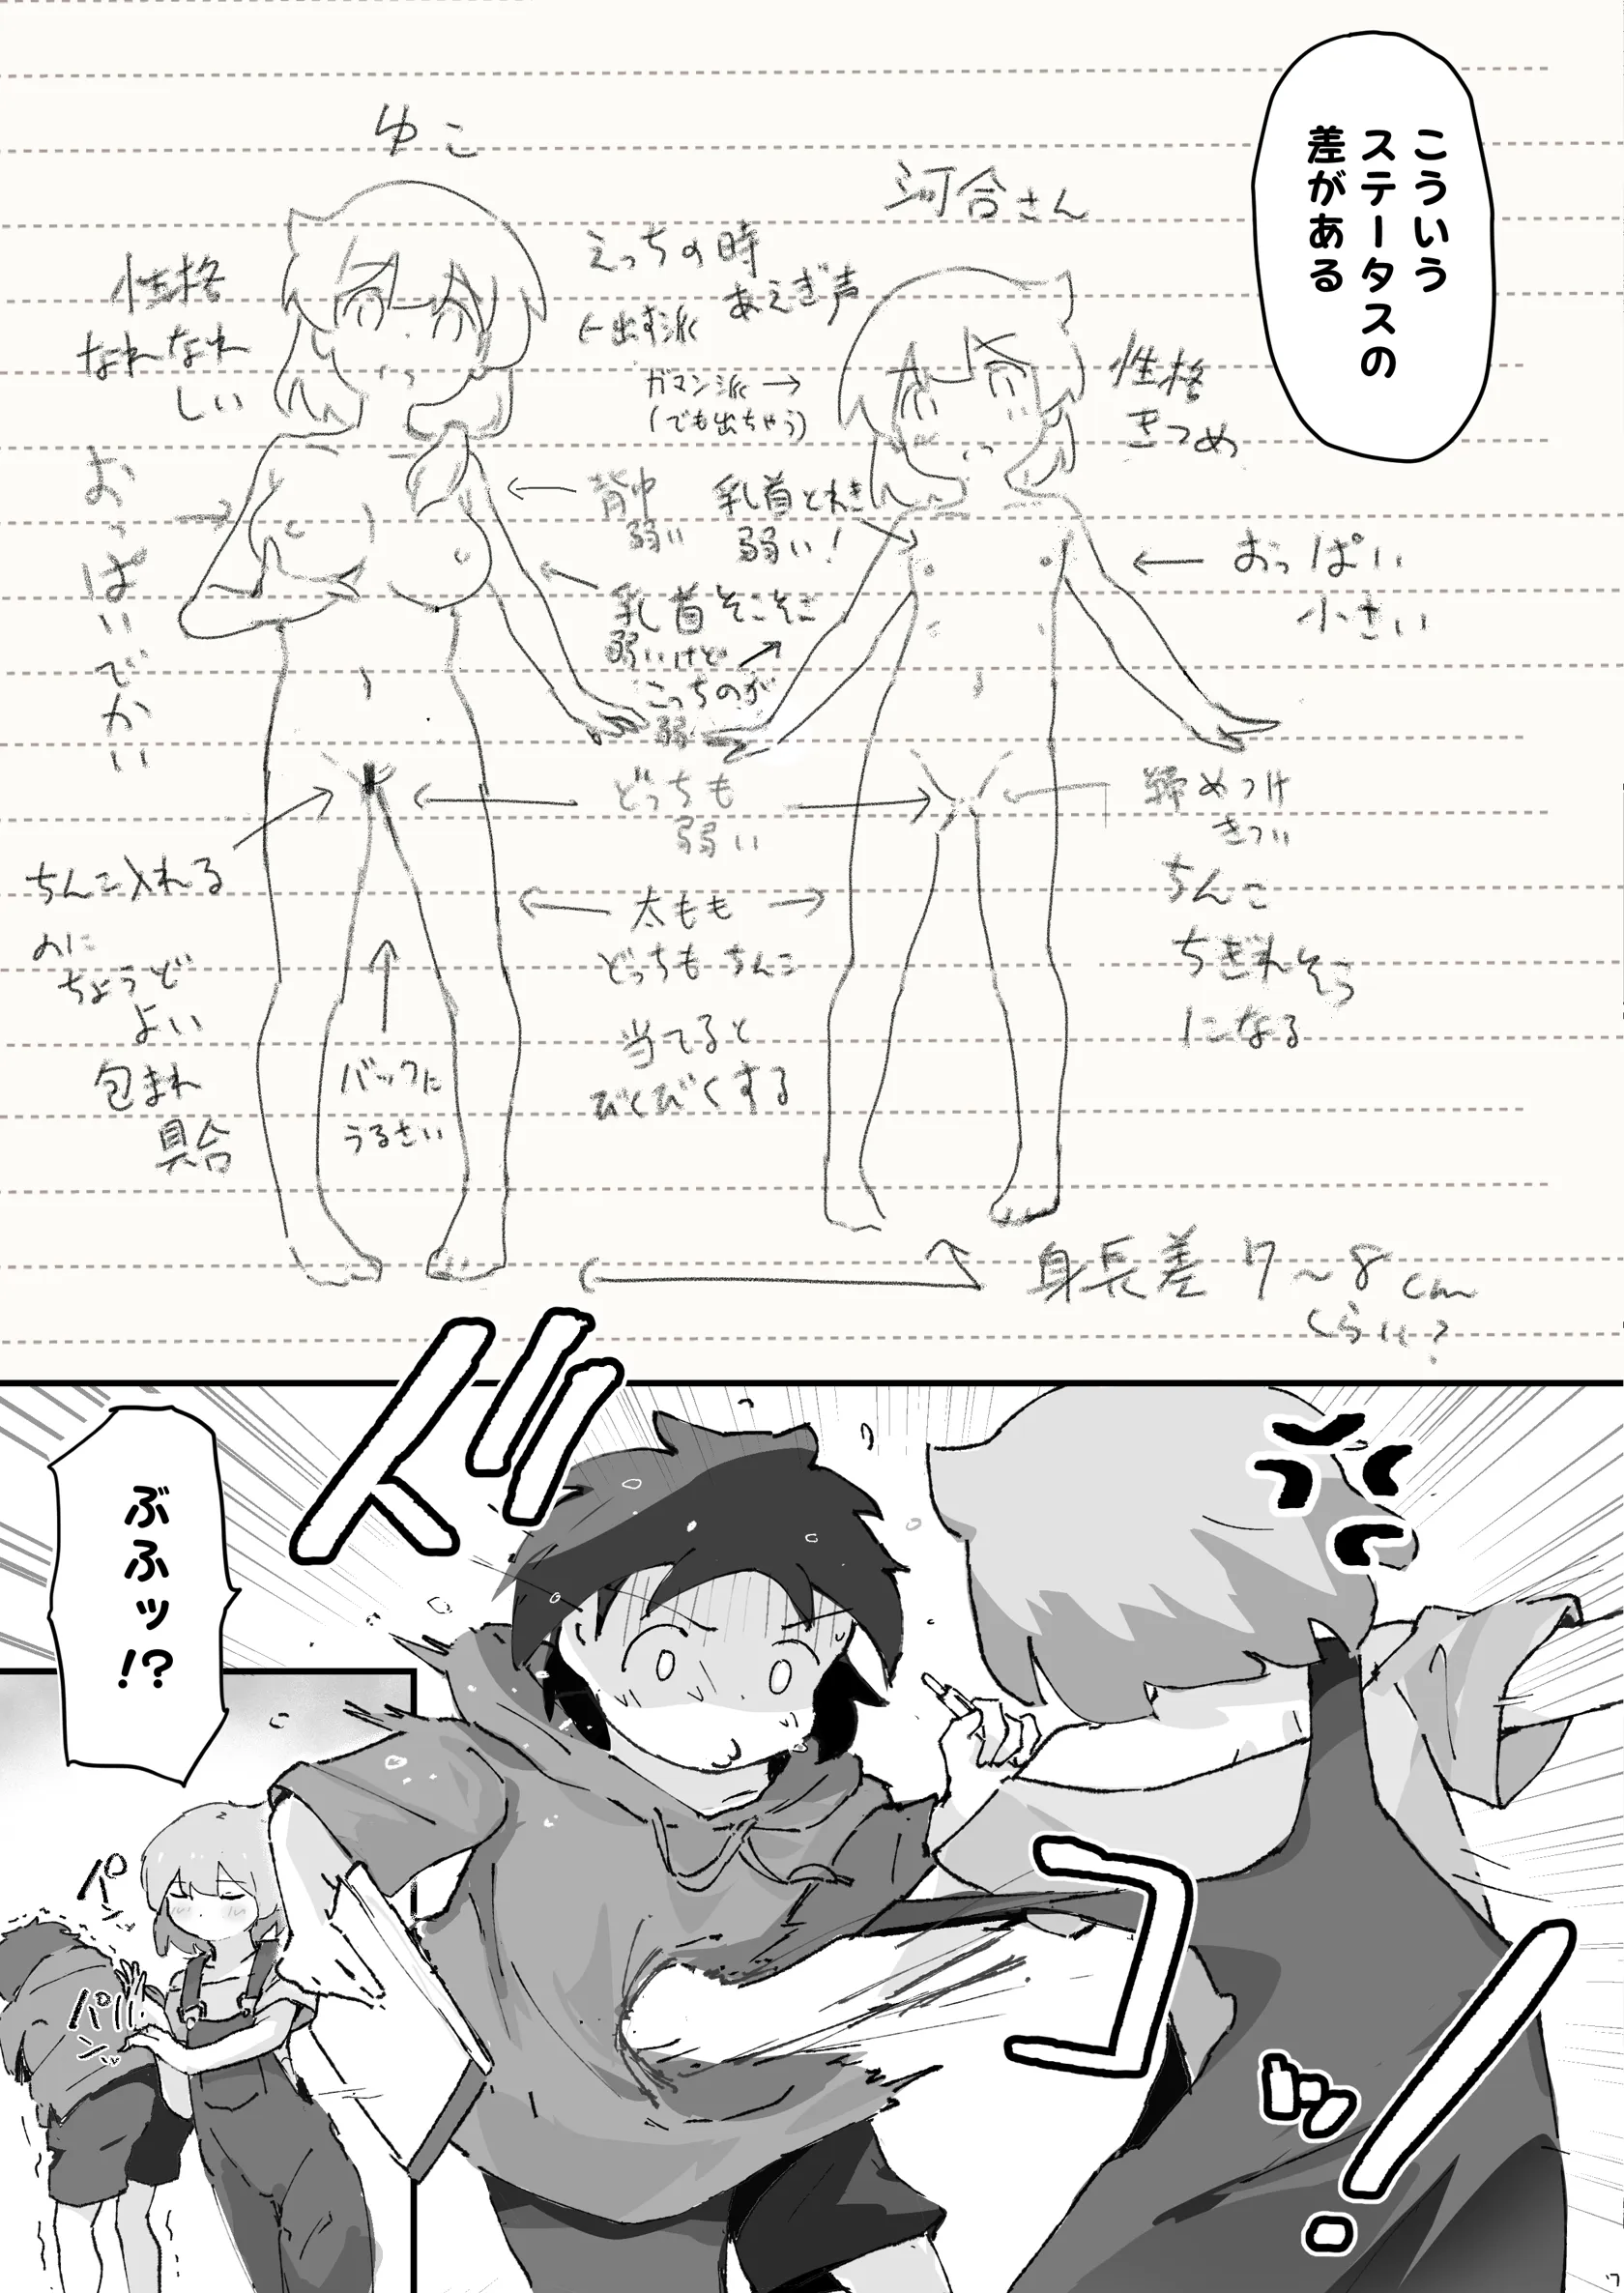 こういう
ステータスの
差がある
河合さん
ゆこ
性格
なれなれ
しい
えっちの時
あえぎ声
←出す派
ガマン派→
(でも出ちゃう)
性格
きつめ
おっぱいでかい
背中
弱い
乳首とわき
弱い!
おっぱい
小さい
乳首そこそこ
弱いけど
こっちのが
弱い
どっちも
弱い
締めつけ
きつい
ちんこ
ちぎれそう
になる
ちんこ入れる
のに
ちょうど
よい
包まれ
具合
太もも
どっちもちんこ
当てると
びくびくする
バックに
うるさい
身長差 7〜8cm
くらい?
ドゴッ!
ぶふッ!?
パン
パン